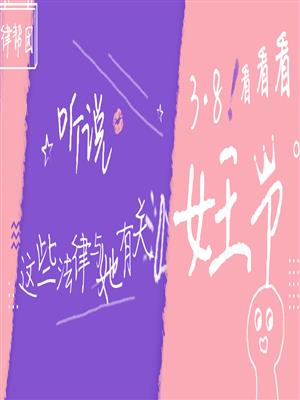 律帮团
听说
这些法律与她有关
3·8！看看看
女王节